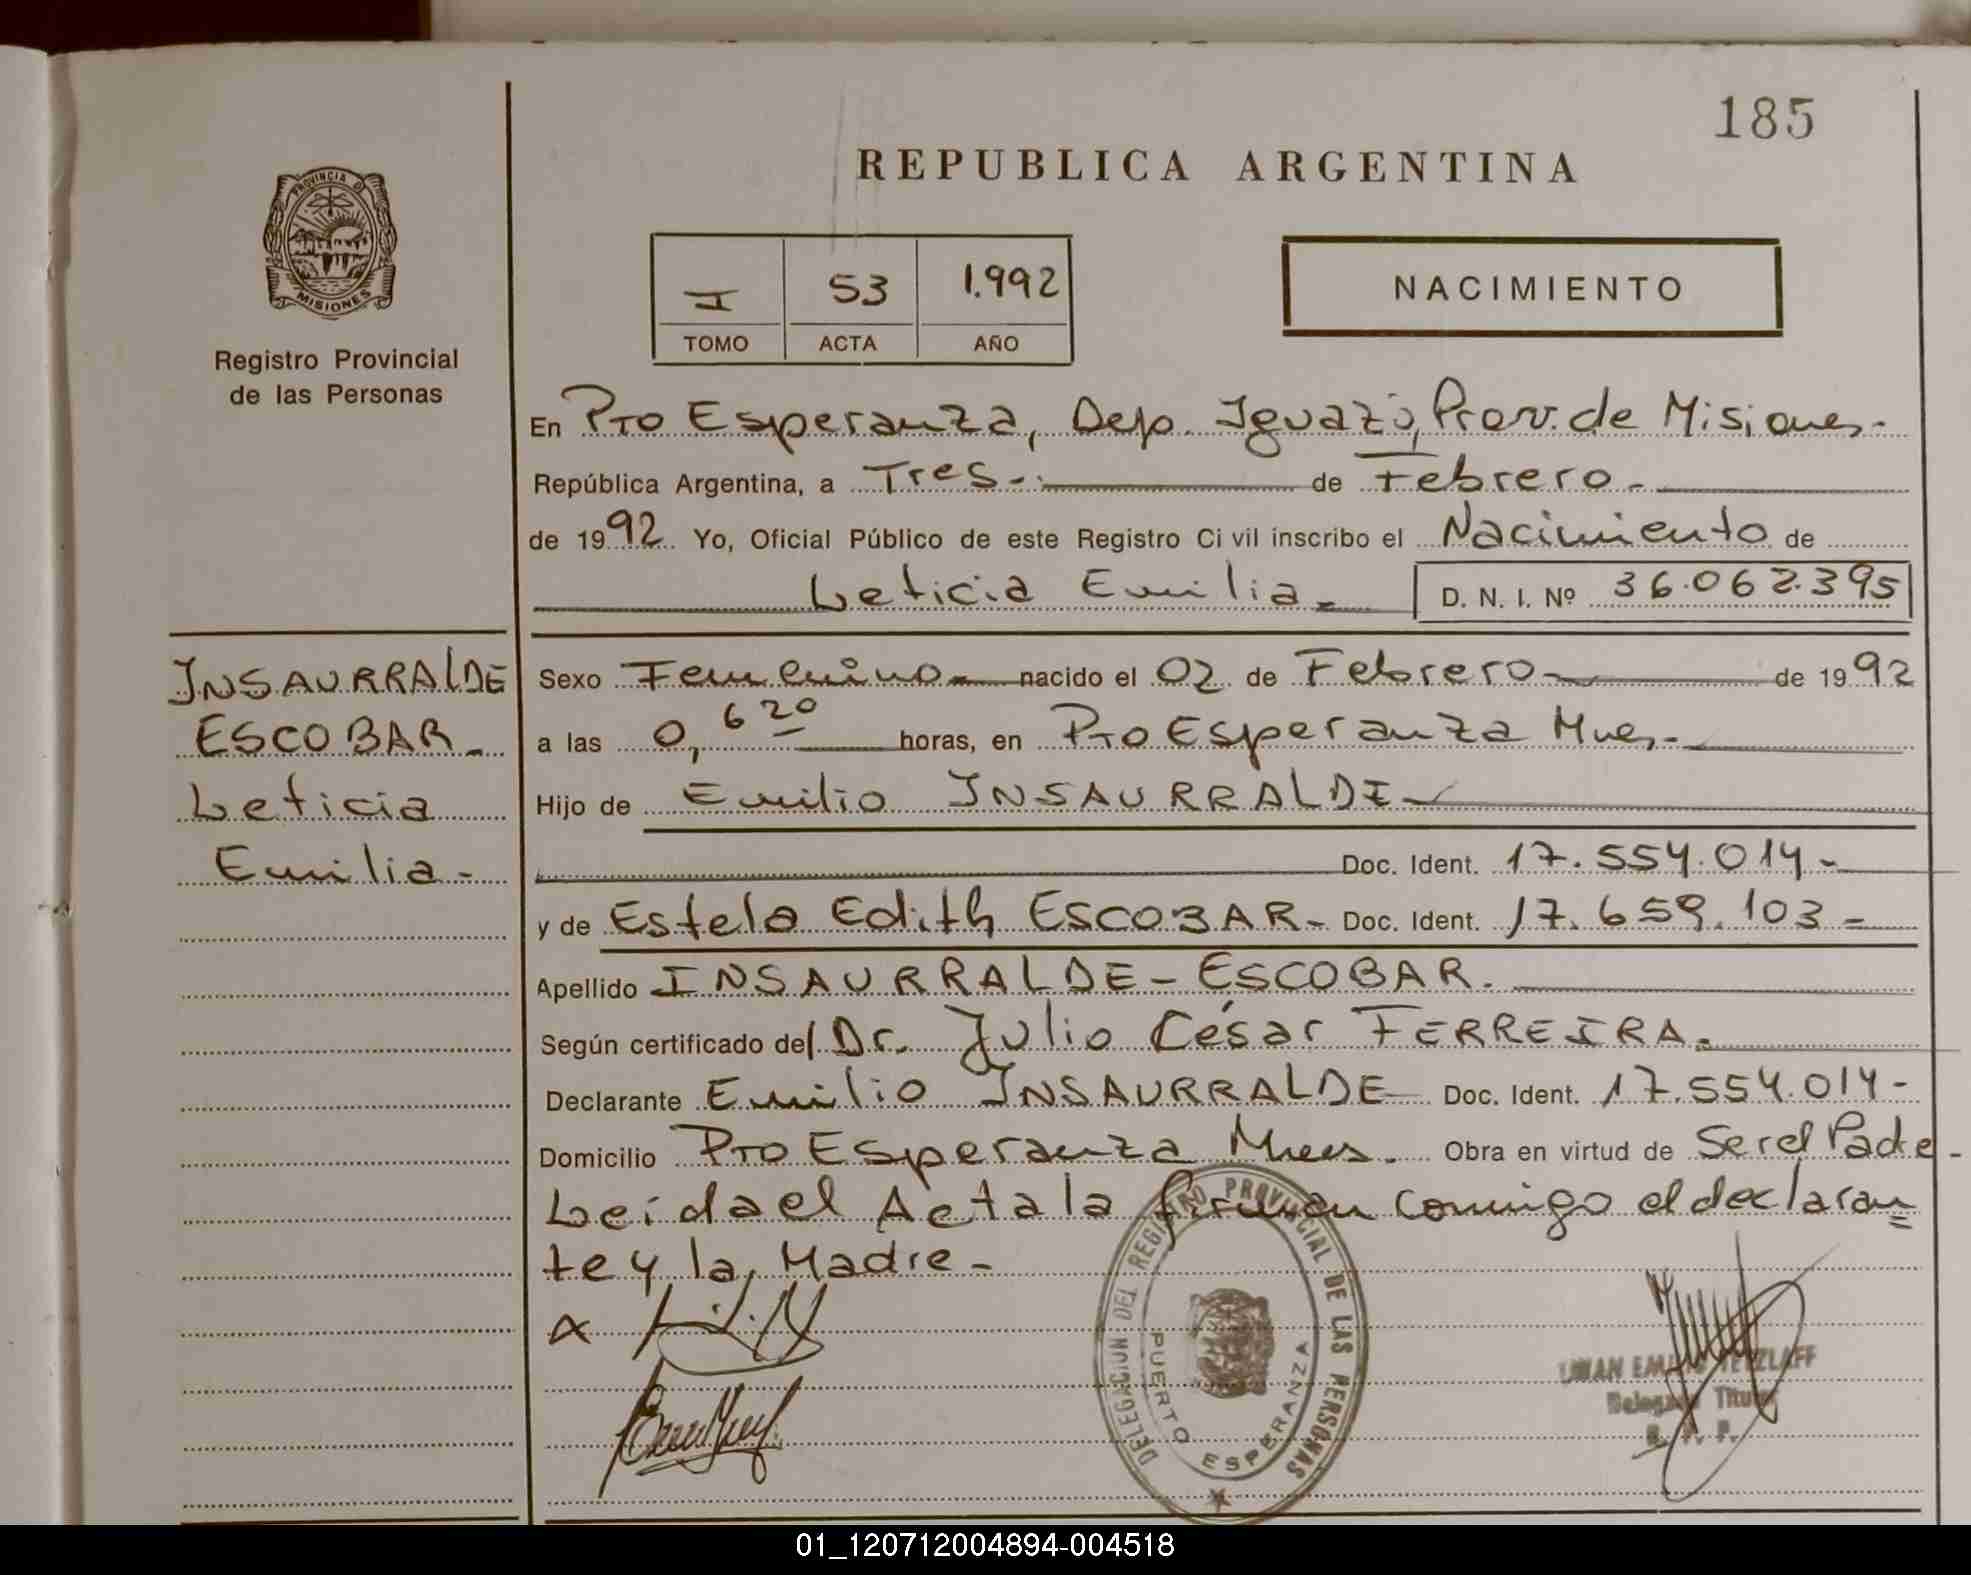 185
REPUBLICA ARGENTINA
PROVINCIA DE
MISIONES
Registro Provincial
de las Personas
I 53 1.992
TOMO ACTA AÑO
NACIMIENTO
En Pto Esperanza, Dep. Iguazú, Prov. de Misiones.-
República Argentina, a Tres.- de Febrero.-
de 1992. Yo, Oficial Público de este Registro Civil inscribo el Nacimiento de
Leticia Emilia.- D. N. I. Nº 36.062.395
INSAURRALDE
ESCOBAR.-
Leticia
Emilia.-
Sexo Femenino.- nacido el 02 de Febrero de 1992
a las 0,620 horas, en Pto Esperanza Mnes.-
Hijo de Emilio INSAURRALDE
Doc. Ident. 17.554.014-
y de Estela Edith ESCOBAR.- Doc. Ident. 17.659.103-
Apellido INSAURRALDE-ESCOBAR.
Según certificado del Dr. Julio César FERREIRA.
Declarante Emilio INSAURRALDE Doc. Ident. 17.554.014-
Domicilio Pto Esperanza Mnes. Obra en virtud de Ser el Padre-
Leída el Acta la firman conmigo el declaran
te y la Madre-
DELEGACION DEL REGISTRO PROVINCIAL DE LAS PERSONAS
PUERTO ESPERANZA
TETZLAFF
Delegado Titular
01_120712004894-004518